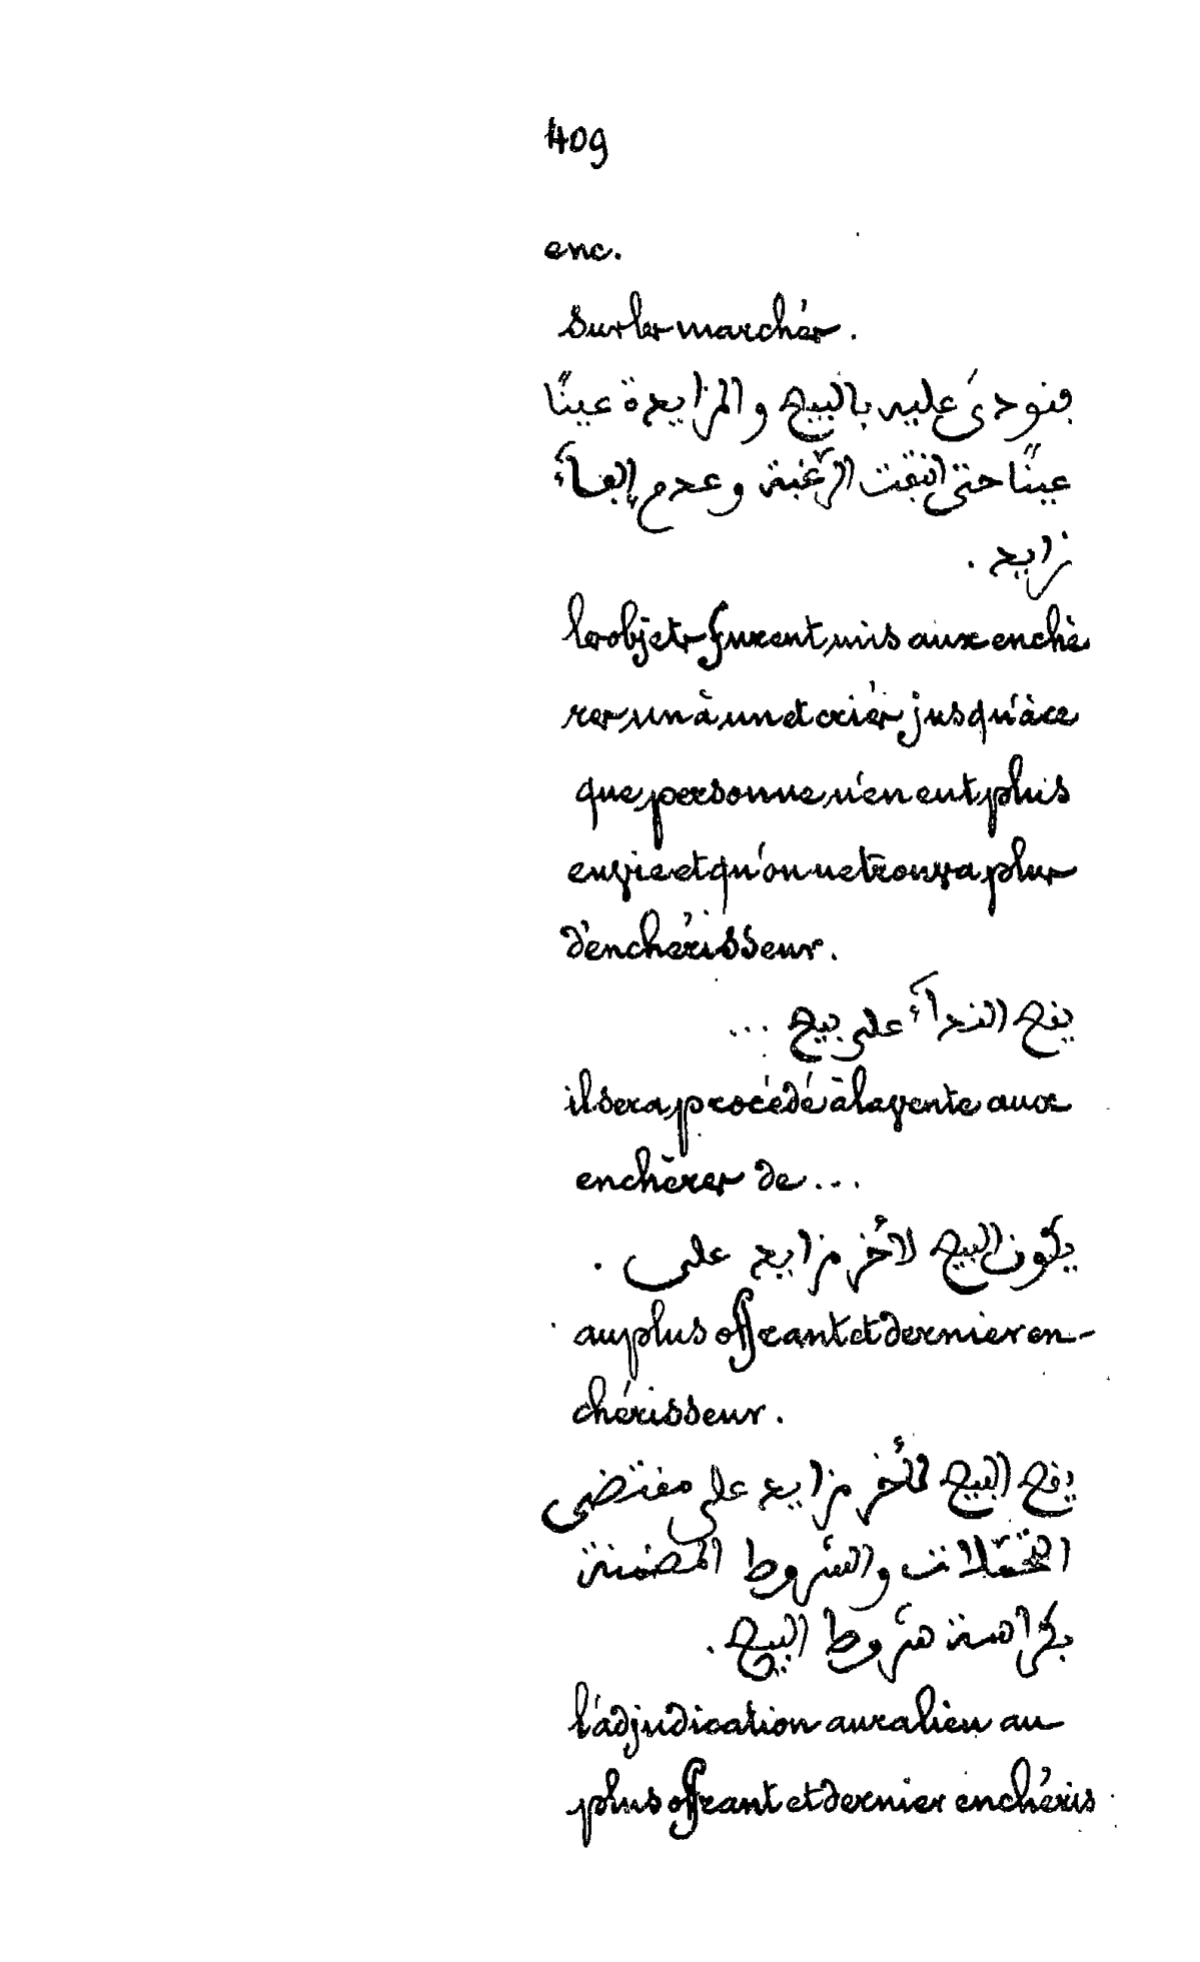 409
enc.
sur les marchés.
فنودىَ عليه بالبيع والمزايدة عينًا
عينًا حتى انتفت الرّغبة وعدم إلفـآءَ
زايد .
les objets furent mis aux enchè
res un à un et criés jusqu'à ce
que personne n'en eut plus
envie et qu'on ne trouva plus
d'enchérisseur.
يقع الندآءَ على بيع ...
il sera procédé à la vente aux
enchères de ...
يكون البيع لأخر مزايد على .
au plus offrant et dernier en-
chérisseur.
يقع البيع لأخر مزايد على مقتضى
التحمّلات والشروط المضمنة
بكراسة شروط البيع .
l'adjudication aura lieu au
plus offrant et dernier enchéris